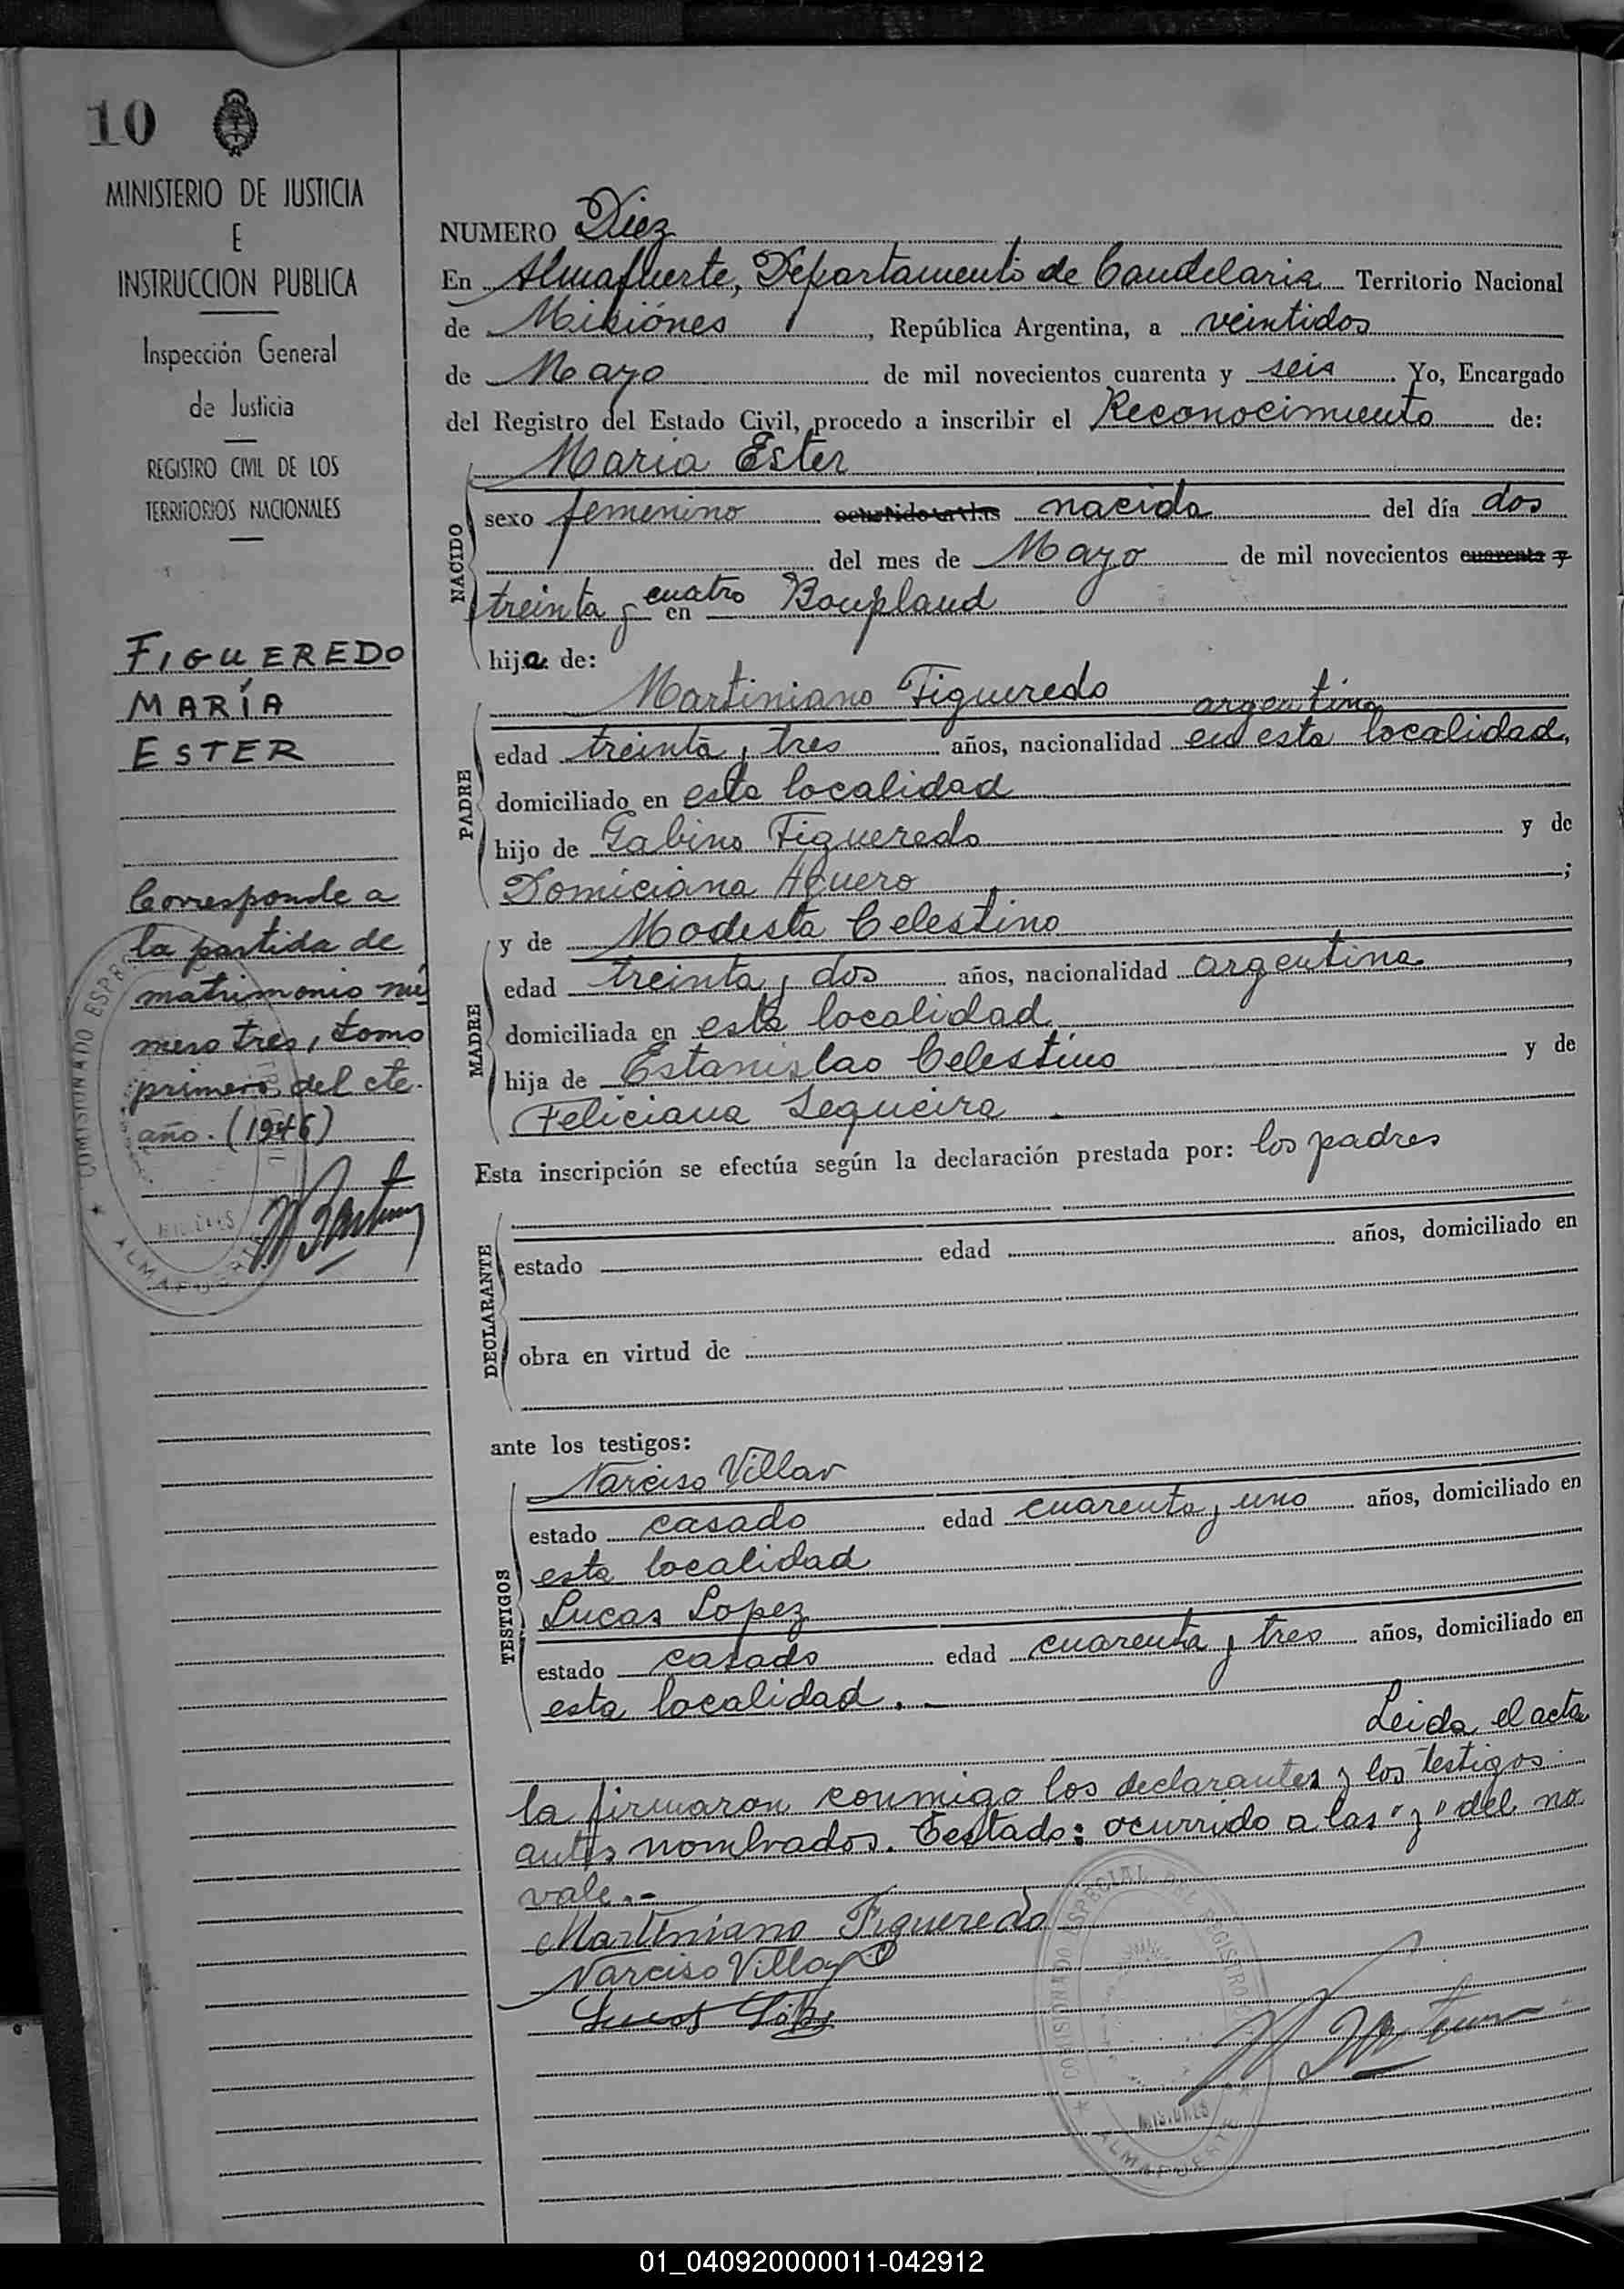 10
MINISTERIO DE JUSTICIA
E
INSTRUCCION PUBLICA
Inspección General
de Justicia
REGISTRO CIVIL DE LOS
TERRITORIOS NACIONALES
FIGUEREDO
MARÍA
ESTER
Corresponde a
la partida de
matrimonio nú
mero tres, tomo
primero del cte.
año. (1946)
COMISIONADO ESPE
MISIONES
ALMAFUERTE
NUMERO Diez
En Almafuerte, Departamento de Candelaria Territorio Nacional
de Misiónes, República Argentina, a veintidos
de Mayo de mil novecientos cuarenta y seis. Yo, Encargado
del Registro del Estado Civil, procedo a inscribir el Reconocimiento de:
NACIDO
Maria Ester
sexo femenino ocurrido a las nacida del día dos
del mes de Mayo de mil novecientos cuarenta y
treinta y cuatro en Bonpland
hija de:
PADRE
Martiniano Figueredo
argentino
edad treinta y tres años, nacionalidad en esta localidad,
domiciliado en esta localidad
hijo de Gabino Figueredo y de
Domiciana Aguero;
MADRE
y de Modesta Celestino
edad treinta y dos años, nacionalidad argentina,
domiciliada en esta localidad
hija de Estanislao Celestino y de
Feliciana Sequeira.
Esta inscripción se efectúa según la declaración prestada por: los padres
DECLARANTE
estado edad años, domiciliado en
obra en virtud de
ante los testigos:
TESTIGOS
Narciso Villar
estado casado edad cuarenta y uno años, domiciliado en
esta localidad
Lucas Lopez
estado casado edad cuarenta y tres años, domiciliado en
esta localidad.-
Leida el acta
la firmaron conmigo los declarantes y los testigos
antes nombrados. Testado: ocurrido a las "y" del no
vale.-
Martiniano Figueredo
Narciso Villar
Lucas López
COMISIONADO ESPECIAL DEL REGISTRO
MISIONES
ALMAFUERTE
01_040920000011-042912